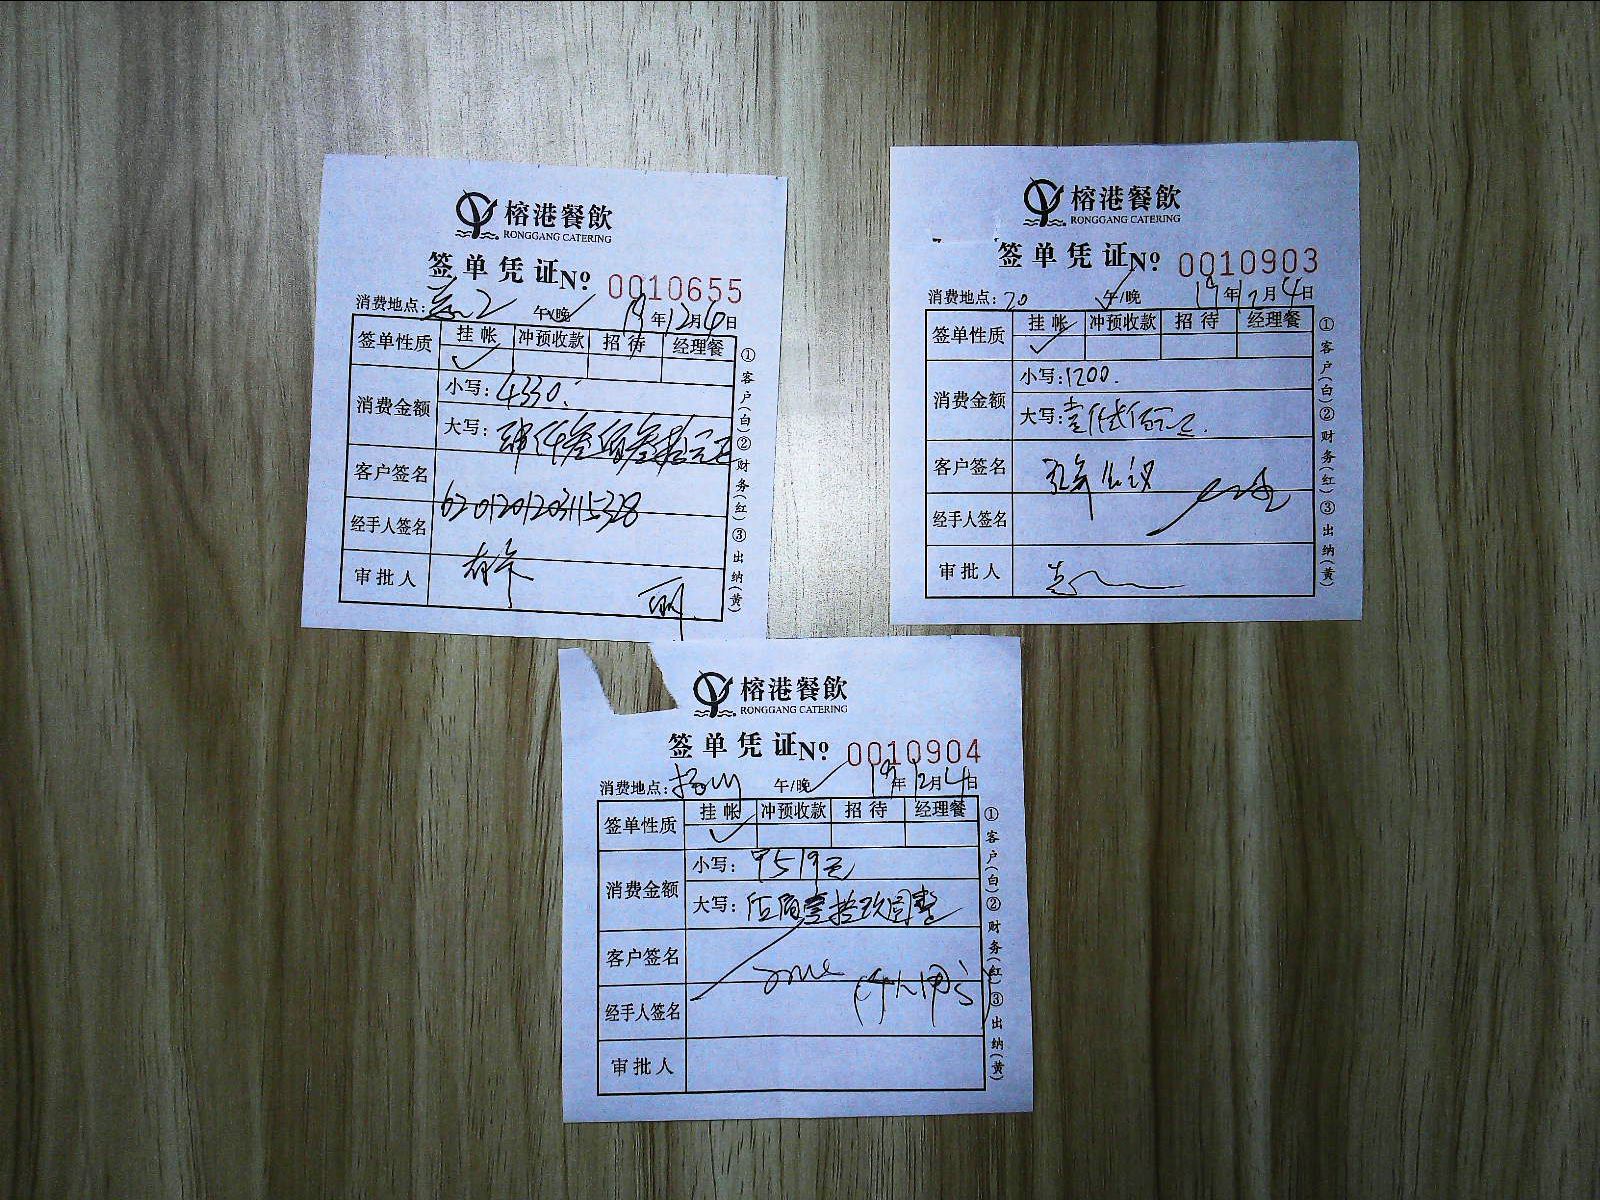 榕港餐飲
RONGGANG CATERING
签单凭证 № 0010655
消费地点: 午/晚 19年12月4日
签单性质 挂帐 冲预收款 招待 经理餐
消费金额
小写: 4330.
大写: 肆仟叁佰叁拾元正
客户签名
6201201203115328
经手人签名
审批人
①客户(白)②财务(红)③出纳(黄)
榕港餐飲
RONGGANG CATERING
签单凭证 № 0010903
消费地点: 午/晚 19年12月4日
签单性质 挂帐 冲预收款 招待 经理餐
消费金额
小写: 1200.
大写: 壹仟贰佰元正.
客户签名
经手人签名
审批人
①客户(白)②财务(红)③出纳(黄)
榕港餐飲
RONGGANG CATERING
签单凭证 № 0010904
消费地点: 午/晚 19年12月4日
签单性质 挂帐 冲预收款 招待 经理餐
消费金额
小写: 519元
大写: 伍佰壹拾玖圆整
客户签名
经手人签名
审批人
①客户(白)②财务(红)③出纳(黄)